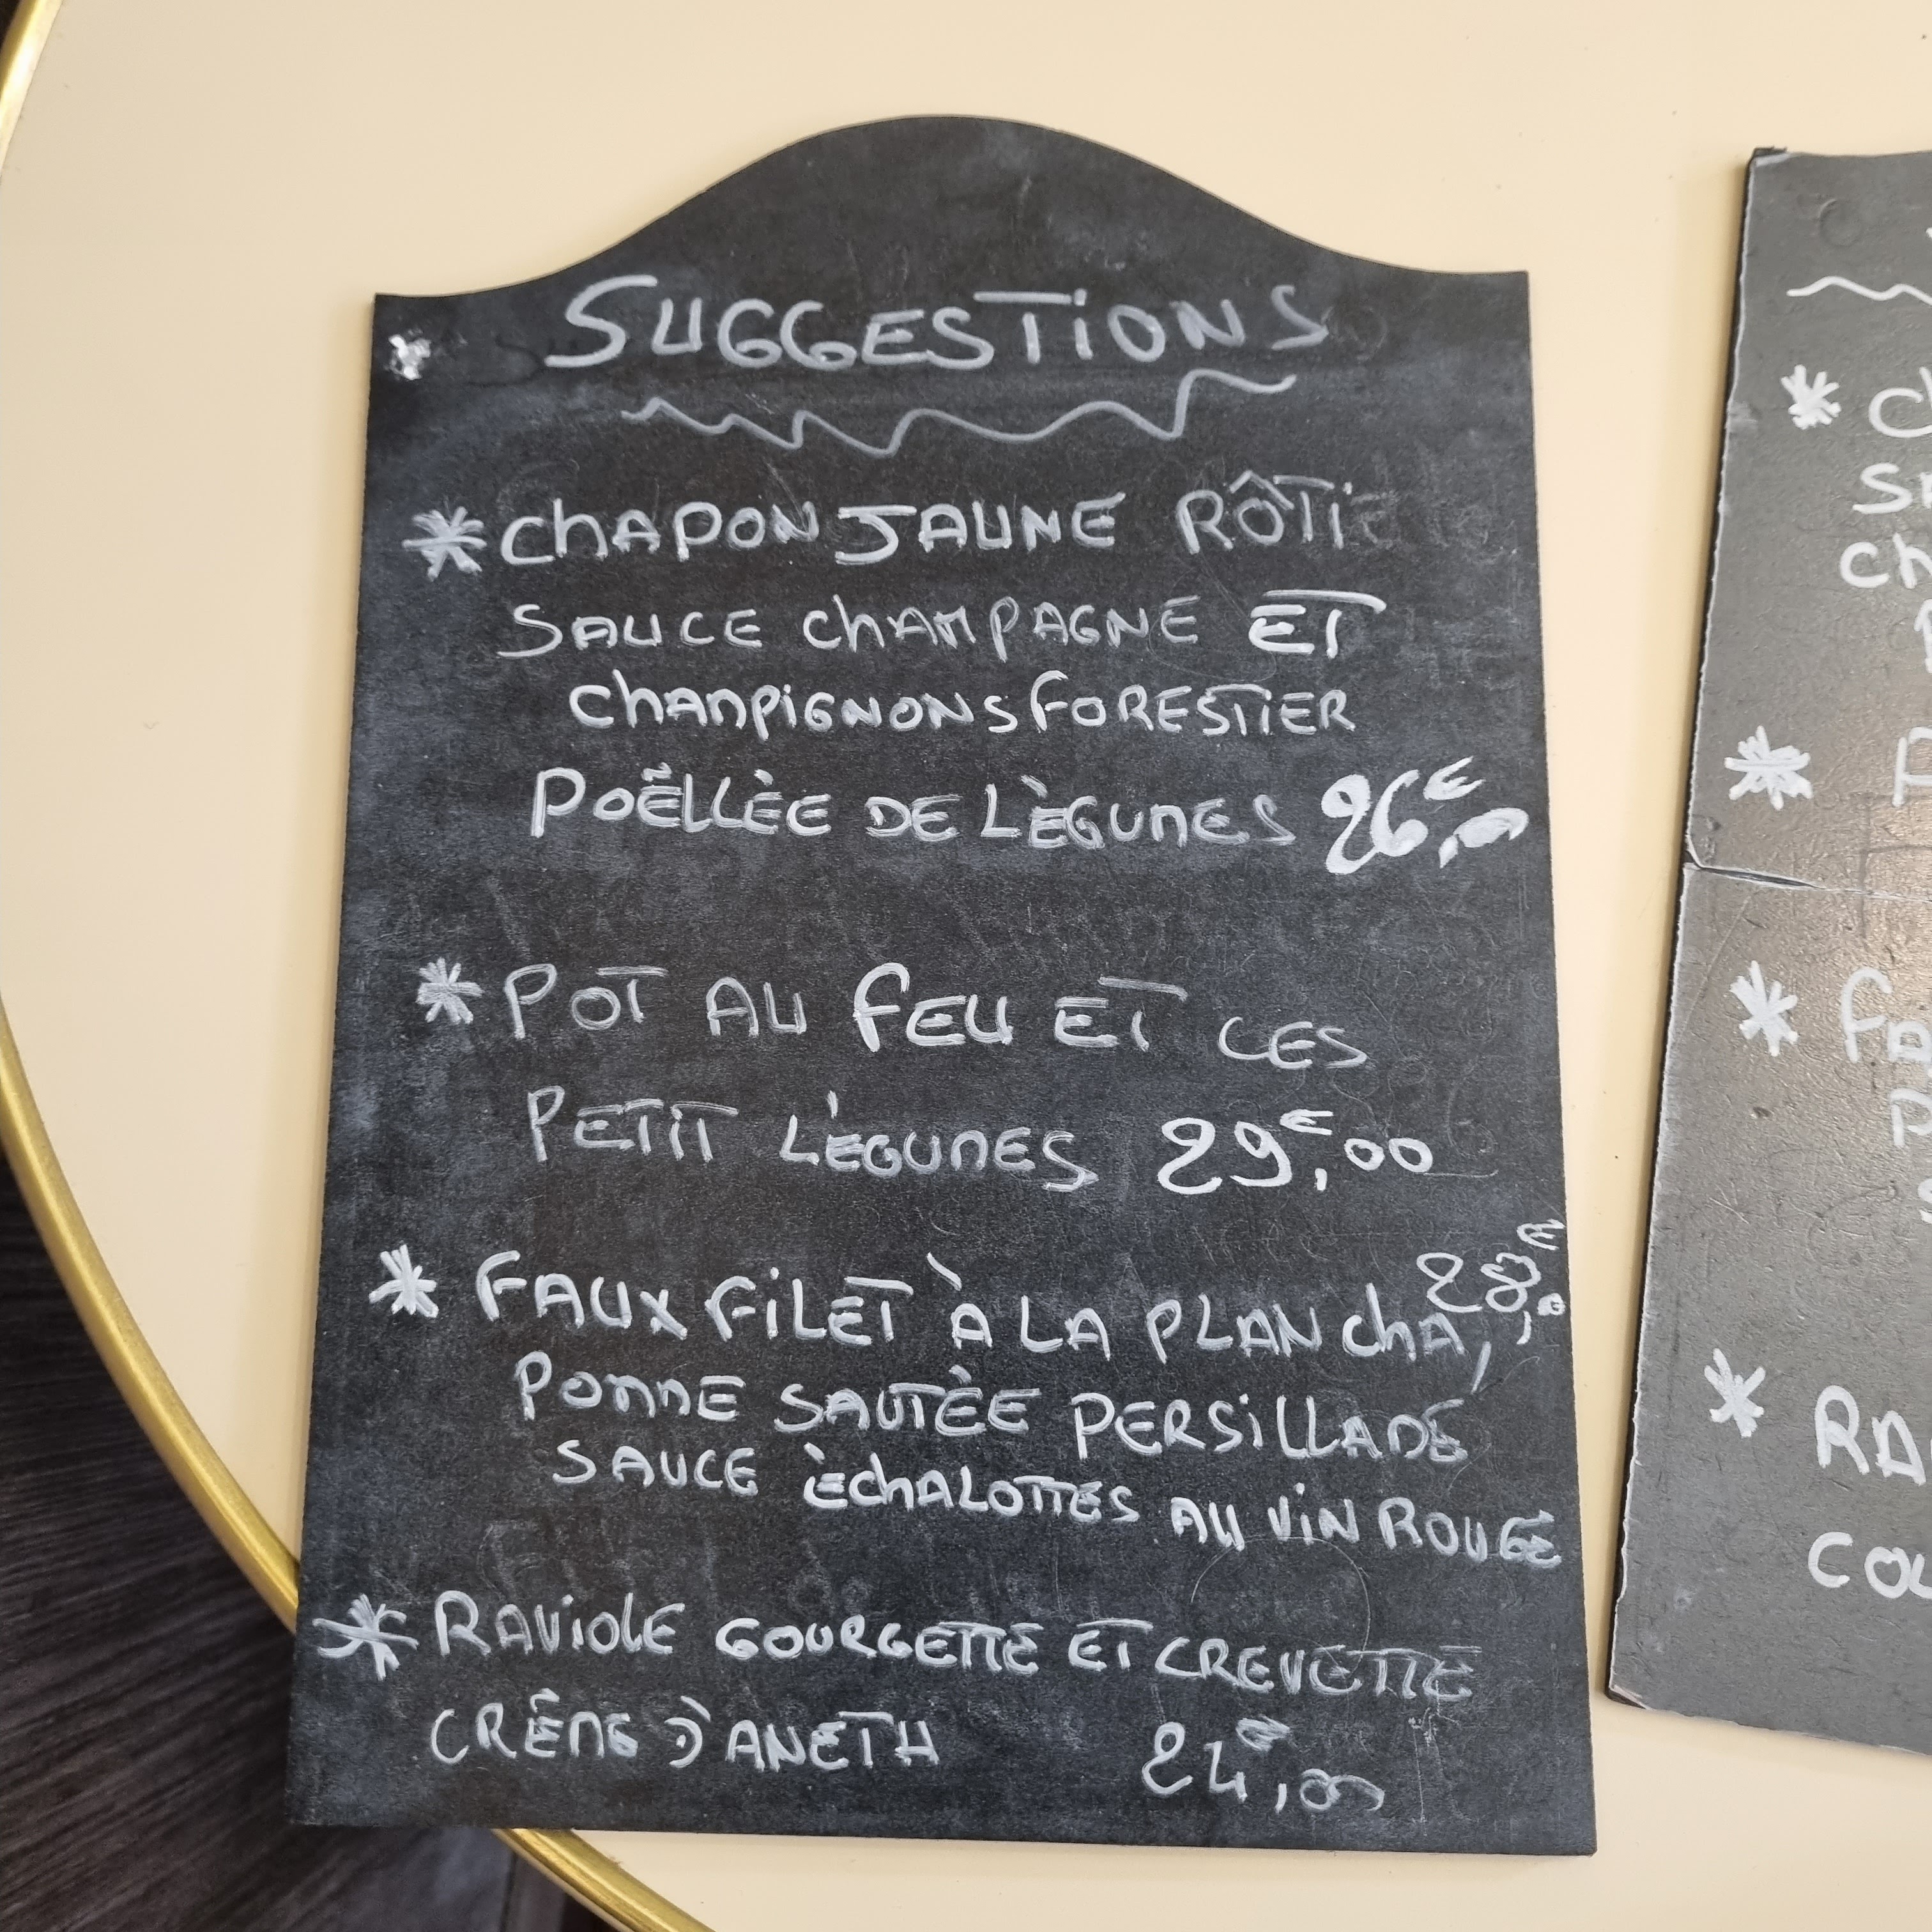 SUGGESTIONS
* CHAPON JAUNE RÔTI
SAUCE CHAMPAGNE ET
CHAMPIGNONS FORESTIER
POÊLLÈE DE LÈGUMES 26€,00
* POT AU FEU ET CES
PETIT LÉGUMES 29€,00
* FAUX FILET À LA PLANCHA, 28€,00
POMME SAUTÈE PERSILLADE
SAUCE ÈCHALOTTES AU VIN ROUGE
* RAVIOLE GOURGETTE ET CREVETTE
CRÊME D'ANETH 24€,00
*
*
* 
*
COU